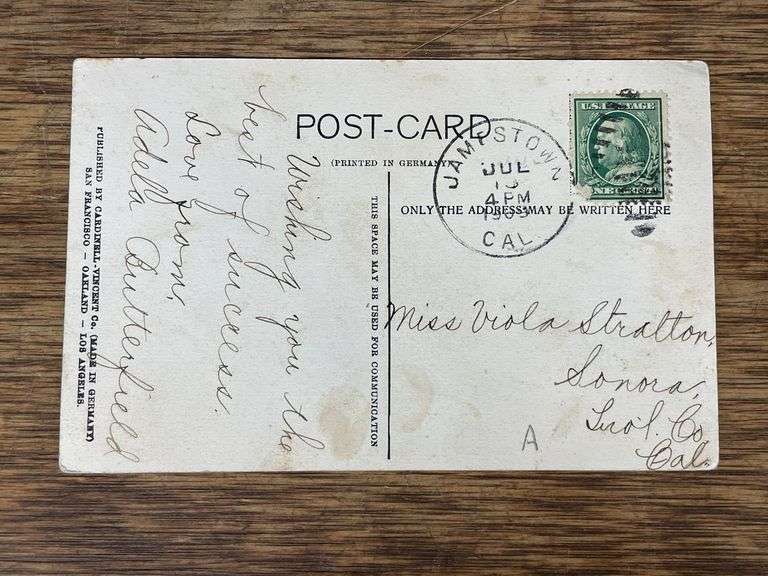 POST-CARD
(PRINTED IN GERMANY)
U.S. POSTAGE
JAMESTOWN
JUL
4 PM
1909
CAL
ONLY THE ADDRESS MAY BE WRITTEN HERE
THIS SPACE MAY BE USED FOR COMMUNICATION
Wishing you the
best of success.
Love from,
Adela Butterfield
PUBLISHED BY CARDINELL-VINCENT Co. (MADE IN GERMANY)
SAN FRANCISCO — OAKLAND — LOS ANGELES.
Miss Viola Stratton,
Sonora,
Tuol. Co.
Cal.
A